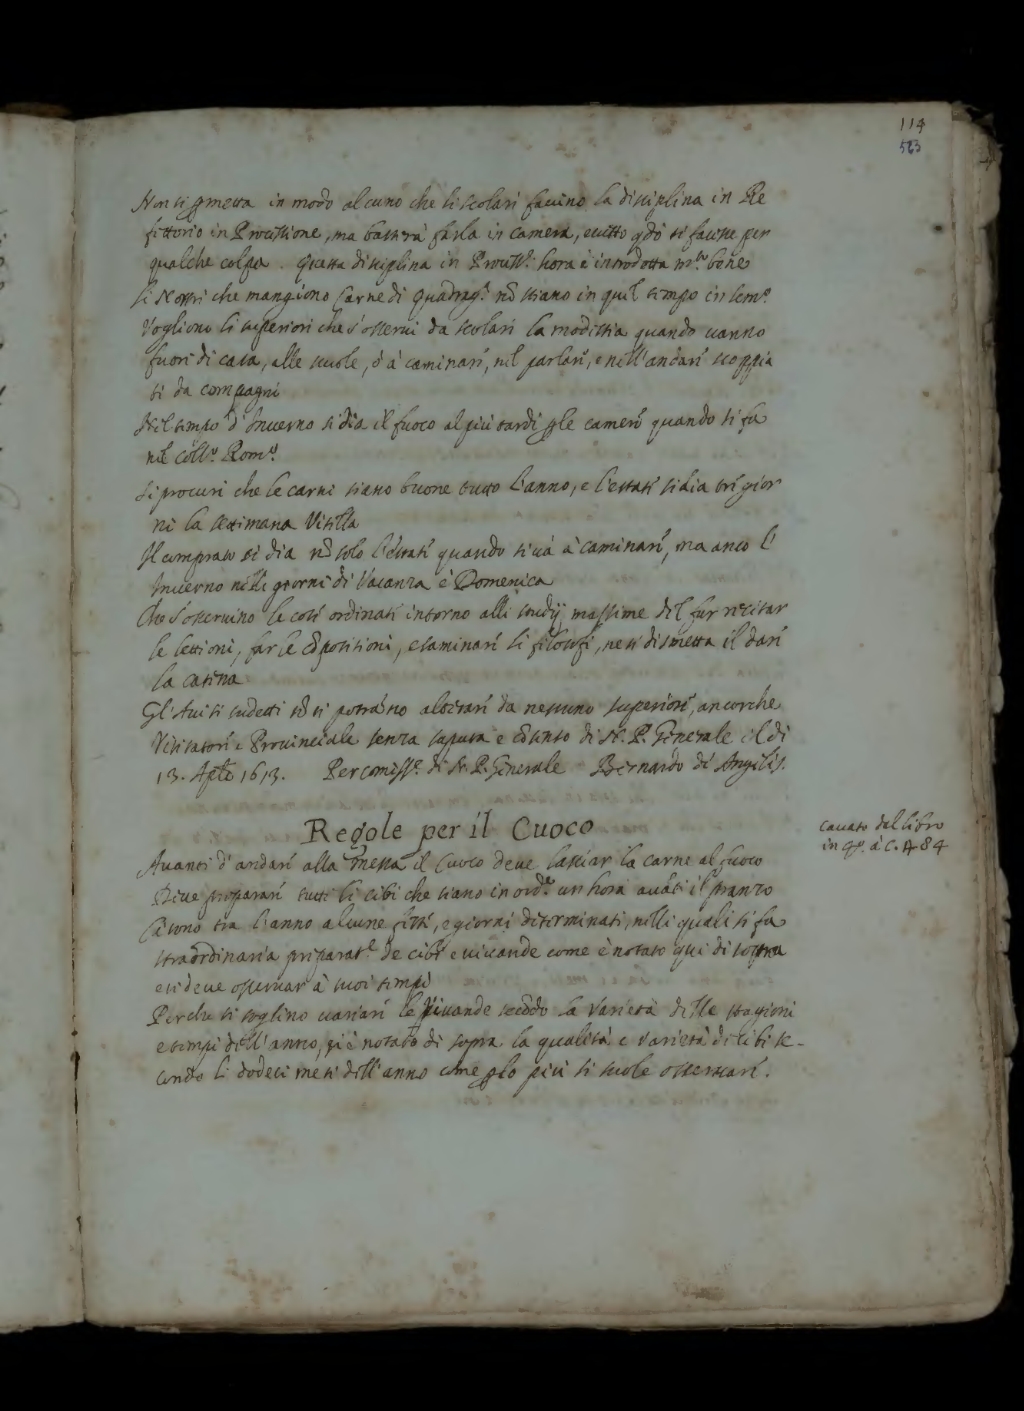 114
563
Non si pmetta in modo alcuno che li scolari faccino la disciplina in Re
fettorio in Processione, ma basterà farla in camera, eccetto qdo si facesse per
qualche colpa. Questa disciplina in Process.e hora è introdotta m.to bene
li Nostri che mangiono Carne di quadrag.a nō stiano in quel tempo insiem.e
Vogliono li superiori che s'osservi da scolari la modestia quando vanno
fuori di casa, alle scuole, ò à caminare, nel parlare, e nell'andare scoppia
ti da compagni
Nel tempo d'Inverno si dia il fuoco al più tardi ple camere quando si fa
nel Coll.o Rom.o
Si procuri che le carni siano buone tutto l'anno, e l'estate si dia tre gior
ni la settimana Vitella
Il companatico si dia nō solo l'estate quando si và à caminare, ma anco l'
Inverno nelli giorni di Vacanza e Domenica
Che s'osservino le cose ordinate intorno alli studij massime del far recitar
le lettioni, far le cōpositioni, esaminare li filosofi, ne si dismetta il dare
la catena
Gl'Avisi sudetti nō si potrāno alterare da nessuno superiore, ancorche
Visitatore e Provinciale senza saputa e cōsenso di N. P. Generale il di
13. Aple 1613. Per comiss.e di N. P. Generale Bernardo de Angelis.
Regole per il Cuoco
cavato dal libro
in 4o. à C. A 84
Avanti d'andare alla messa il Cuoco deve lasciar la carne al fuoco
Deve preparare tutti li cibi che siano in ord.e un hora avāti il pranzo
Ci sono tra l'anno alcune feste, e giorni determinati, nelli quali si fa
straordinaria preparat.e de cibi e vivande come è notato qui di sopra
e si deve osservar à suoi tempi
Perche si soglino variare le Vivande secōdo la varietà delle stagioni
e tempi dell'anno, pciò è notato di sopra la qualità e varietà de cibi se-
condo li dodeci mesi dell'anno come plo più si suole osservare.